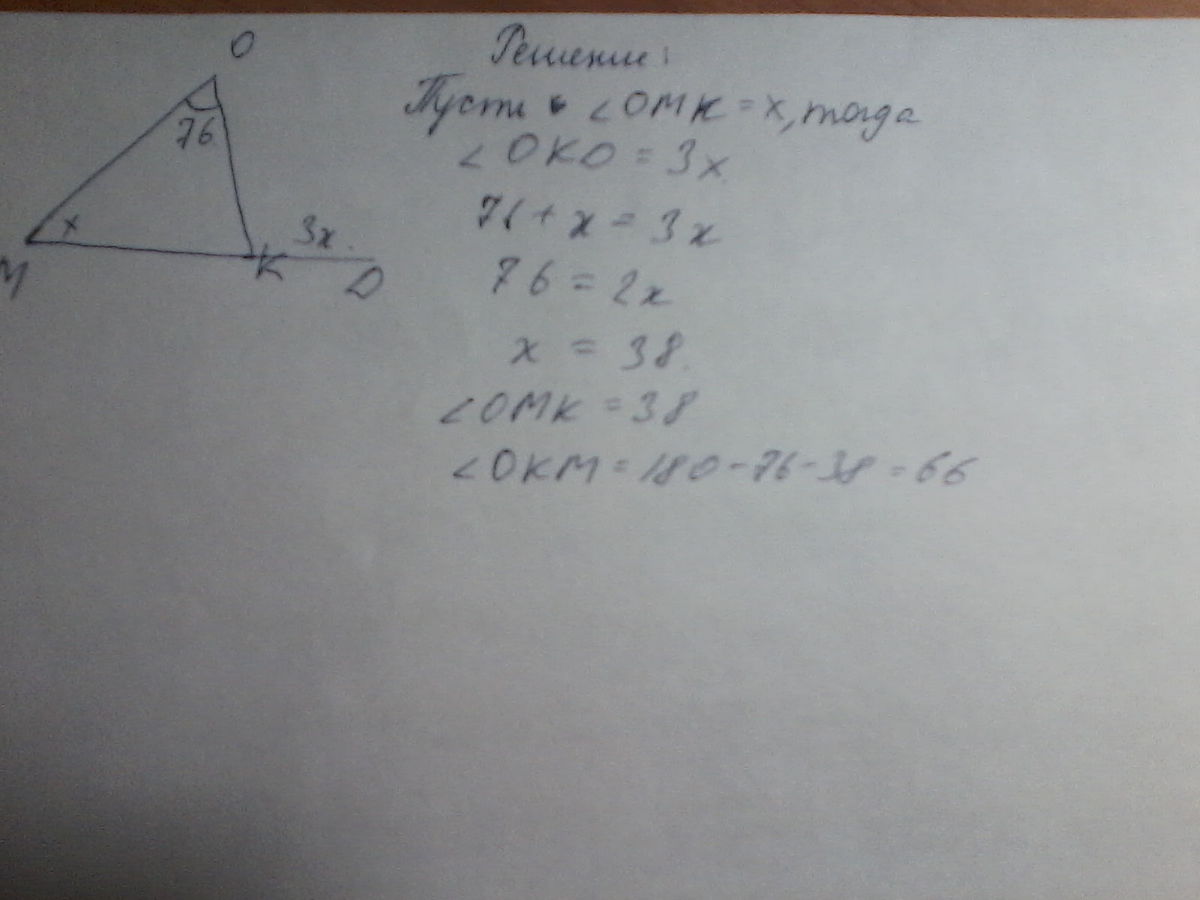 O
76
x
3x.
M
K
D
Решение:
Пусть ∠OMK = x, тогда
∠OKD = 3x
76 + x = 3x
76 = 2x
x = 38.
∠OMK = 38
∠OKM = 180 - 76 - 38 = 66